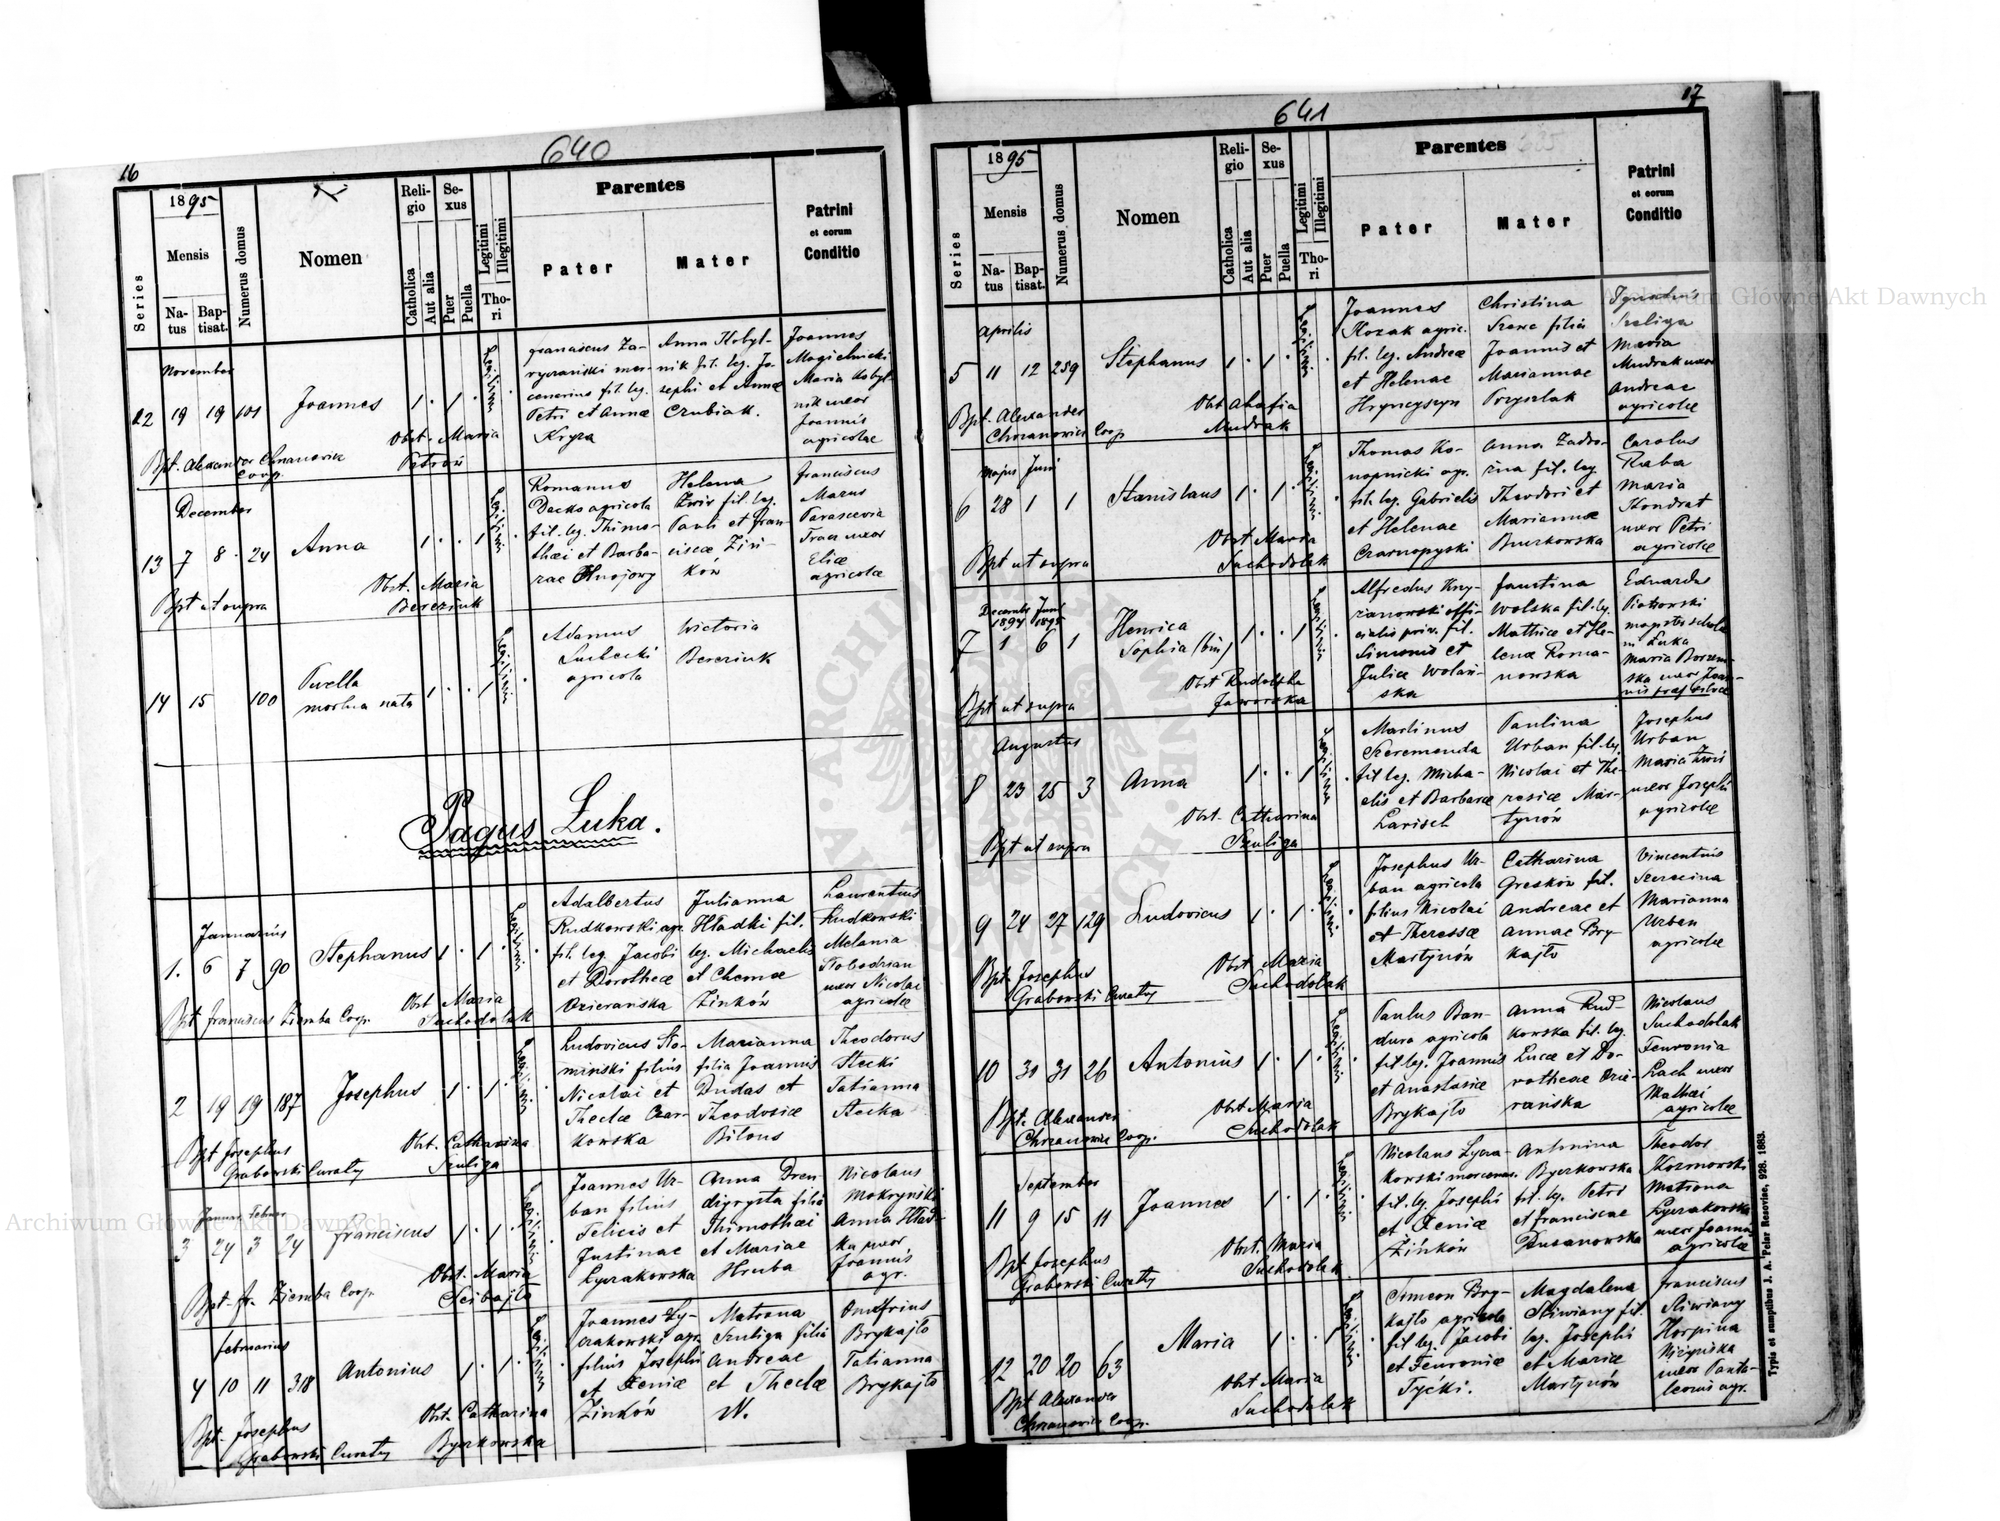 16
640
1895
Series
Mensis
Natus
Baptisat.
Numerus domus
Nomen
Religio
Catholica
Aut alia
Sexus
Puer
Puella
Legitimi
Illegitimi
Thori
Parentes
Pater
Mater
Patrini
et eorum
Conditio
November
12 19 19 101 Joannes 1 1
cenarius fil. leg.
Petri et Annae
Kryza
Anna Kobyl-
nik fil. leg. Jo-
sephi et Annae
Czubiak.
Joannes
Mogielnicki
Maria Kobyl-
nik uxor
Joannis
agricolae
Obst. Maria
Bpt. Alexander
Coop.
December
13 7 8 24 Anna 1 1
Romanus
Dacko agricola
fil. leg. Thimo-
thaei et Barba-
rae
Helena
Pauli et Fran-
ciscae Ziń-
ków
Franciscus
Mazur
Parascevia
uxor
Eliae
agricolae
Bpt ut supra
Obst. Maria
Bereziuk
14 15 100 Puella
mortua nata 1 1
Adamus
Suchecki
agricola
Victoria
Bereziuk
Pagus Luka.
Januarius
1. 6 7 90 Stephanus 1 1
Adalbertus
Rudkowski agr.
fil. leg. Jacobi
et Dorotheae
Ozierańska
Julianna
Hładki fil.
leg. Michaelis
et
Zinków
Laurentius
Rudkowski
Melania
Słobodzian
uxor Nicolai
agricolae
Bpt Franciscus Ziemba Coop.
Obst Maria
Suchodolak
2 19 19 187 Josephus 1 1
Ludovicus Sło-
miński filius
Nicolai et
Theclae Czar-
kowska
Marianna
filia Joannis
Dudas et
Theodosiae
Bilous
Theodorus
Stecki
Tatianna
Stecka
Bpt Josephus
Grabowski Curatus
Obst. Catharina
Szuliga
Januar Februar
3 24 3 24 Franciscus 1 1
Joannes Ur-
ban filius
Felicis et
Justinae
Łyczakowska
Anna
filia
Thimothaei
et Mariae
Hruba
Nicolaus
Mokryński
Anna Hład-
ka uxor
Joannis
agr.
Bpt. Fr. Ziemba Coop.
Obst. Maria
Scibajło
Februarius
4 10 11 318 Antonius 1 1
Joannes Ły-
czakowski agr.
filius Josephi
et Xeniae
Zinków
Matrona
Szuliga filia
Andreae
et Theclae
N.
Onufrius
Brykajło
Tatianna
Brykajło
Bpt. Josephus
Grabowski Curatus
Obst. Catharina
Byczkowska
17
641
1895
Series
Mensis
Natus
Baptisat.
Numerus domus
Nomen
Religio
Catholica
Aut alia
Sexus
Puer
Puella
Legitimi
Illegitimi
Thori
Parentes
Pater
Mater
Patrini
et eorum
Conditio
Aprilis
5 11 12 259 Stephanus 1 1
Joannes
Kozak agric.
fil. leg. Andreae
et Helenae
Hryncyszyn
Christina
filia
Joannis et
Mariannae
Przyszlak
Szeliga
Maria
Mudrak uxor
Andreae
agricolae
Bpt. Alexander
Chrzanowicz Coop
Obst Ahafia
Mudrak
Majus Juni
6 28 1 1 Stanislaus 1 1
Thomas Ko-
nopnicki agr.
fil. leg. Gabrielis
et Helenae
Czarnopyski
Anna Zadro-
żna fil. leg.
Theodori et
Mariannae
Carolus
Raba
Maria
Kondrat
uxor Petri
agricolae
Bpt ut supra
Obst Maria
Suchodolak
Decembr Juni
1894 1895
7 1 6 1 Henrica
Sophia (bin) 1 1
Alfredus Krzy-
żanowski offi-
cialis priv. fil.
Simonis et
Juliae Wolań-
ska
Faustina
Wolska fil. leg.
Mathiae et He-
lenae Roma-
nowska
Eduardus
Piotrowski
magister scholae
in Łuka
Maria
ska uxor Joan-
nis
Bpt ut supra
Obst Rudolpha
Jaworska
Augustus
8 23 25 3 Anna 1 1
Martinus
Szeremenda
fil leg. Micha-
elis et Barbarae
Larisch
Paulina
Urban fil. leg.
Nicolai et The-
resiae Mar-
tynów
Josephus
Urban
Maria
uxor Josephi
agricolae
Bpt ut supra
Obst. Catharina
Szuliga
9 24 27 129 Ludovicus 1 1
Josephus Ur-
ban agricola
filius Nicolai
et Theresiae
Martynów
Catharina
Gresków fil.
Andreae et
Annae Bry-
kajło
Vincentius
Marianna
Urban
agricolae
Bpt. Josephus
Grabowski Curatus
Obst. Maria
Suchodolak
10 31 31 26 Antonius 1 1
Paulus Ban-
dura agricola
fil leg. Joannis
et Anastasiae
Brykajło
Anna Rud-
kowska fil. leg.
Lucae et Do-
rotheae Ozie-
rańska
Nicolaus
Suchodolak
Feuronia
Lach uxor
Mathaei
agricolae
Bpt. Alexander
Chrzanowicz Coop.
Obst Maria
Suchodolak
September
11 9 15 11 Joannes 1 1
Nicolaus Łycza-
kowski mercenar.
fil. leg. Josephi
et Xeniae
Zińków
Antonina
Byczkowska
fil. leg. Petri
et Franciscae
Rusanowska
Theodor
Matrona
Łyczakowska
uxor Joannis
agricolae
Bpt Josephus
Grabowski Curatus
Obst. Maria
Suchodolak
12 20 20 63 Maria 1 1
Simeon Bry-
kajło agricola
fil leg. Jacobi
et Feuroniae
Tycki.
Magdalena
Śliwiany fil.
leg. Josephi
et Mariae
Martynów
Franciscus
Śliwiany
Horpina
uxor Panta-
leonis agr.
Bpt Alexander
Chrzanowicz Coop.
Obst Maria
Suchodolak
Typis et sumptibus J. A. Pelar Resoviae, 928. 1883.
Archiwum Główne Akt Dawnych
Archiwum Główne Akt Dawnych